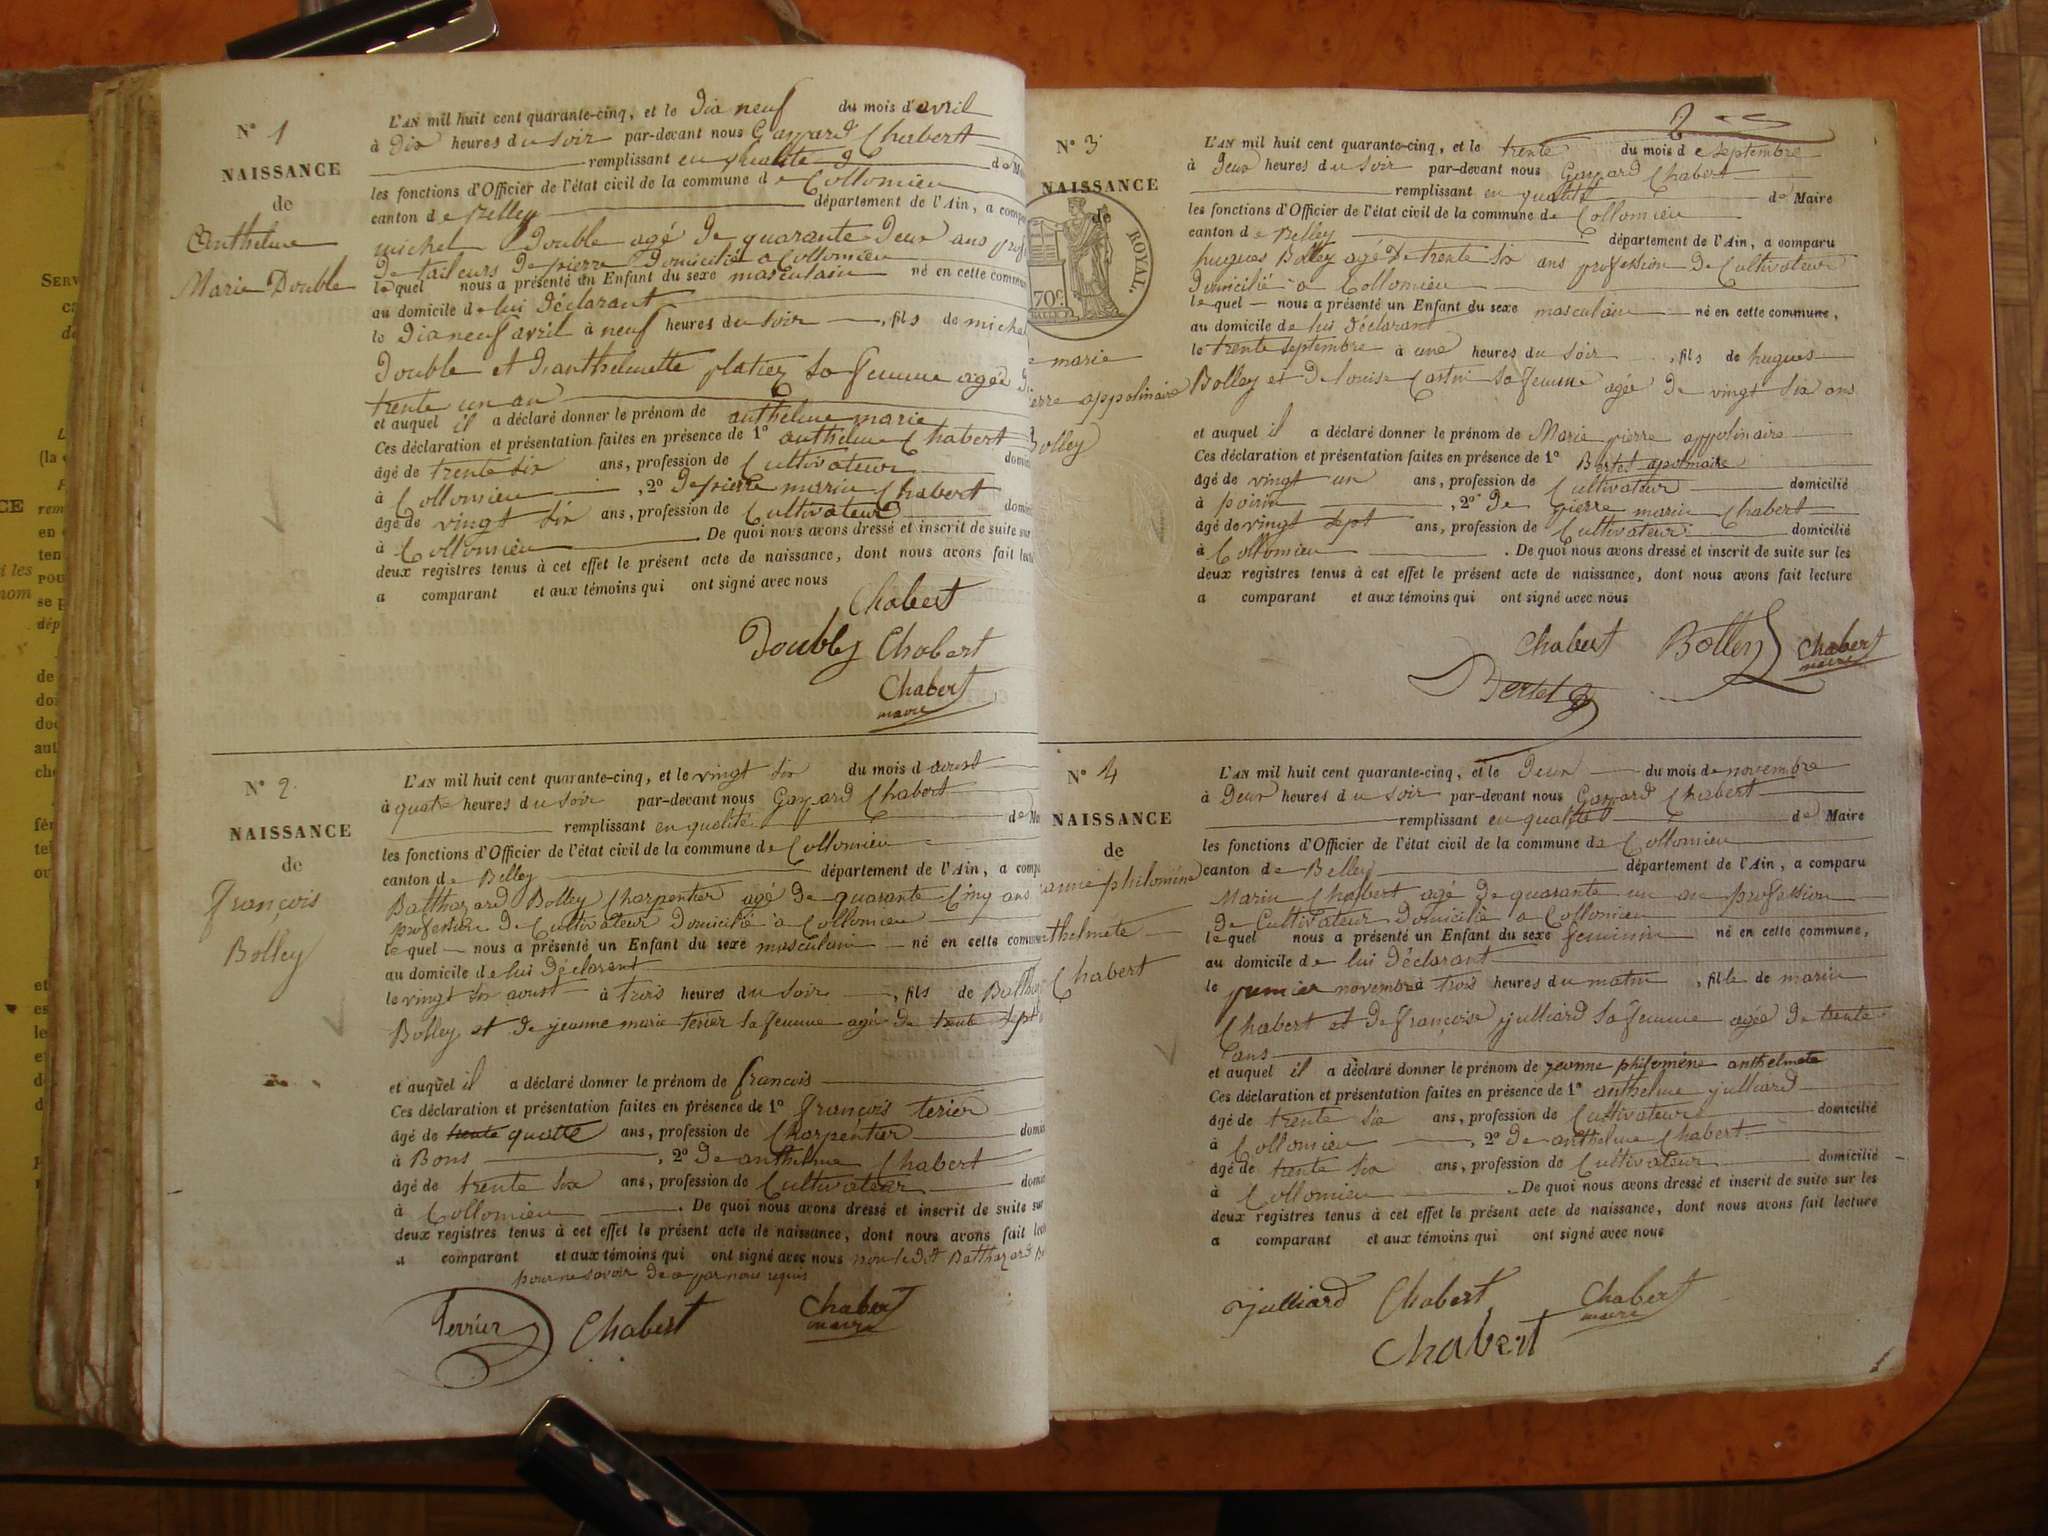 N° 1
NAISSANCE
de
Anthelme
Marie Double
L'AN mil huit cent quarante-cinq, et le dix neuf du mois d'avril
à dix heures du soir par-devant nous Gaspard Chabert
remplissant en qualité de M
les fonctions d'Officier de l'état civil de la commune de Collomieu
canton de Belley département de l'Ain, a comp
michel Double agé de quarante deux ans
de tailleurs de pierre domicilié a Collomieu
lequel nous a présenté un Enfant du sexe masculain né en cette commun
au domicile de lui déclarant
le dix neuf avril à neuf heures du soir , fils de michel
Double et d'anthelmette platiez sa femme agée de
trente un an
et auquel il a déclaré donner le prénom de anthelme marie
Ces déclaration et présentation faites en présence de 1° anthelme Chabert
âgé de trente six ans, profession de Cultivateur domici
à Collomieu , 2° de pierre marin Chabert
âgé de vingt six ans, profession de Cultivateur domici
à Collomieu . De quoi nous avons dressé et inscrit de suite sur
deux registres tenus à cet effet le présent acte de naissance, dont nous avons fait lect
a comparant et aux témoins qui ont signé avec nous
Chabert
Double Chabert
Chabert
maire
N° 2
NAISSANCE
de
françois
Bolley
L'AN mil huit cent quarante-cinq, et le vingt six du mois d aoust
à quatre heures du soir par-devant nous Gaspard Chabert
remplissant en qualité de M
les fonctions d'Officier de l'état civil de la commune de Collomieu
canton de Belley département de l'Ain, a comp
Balthazard Bolley Charpentier agé de quarante Cinq ans
profession de Cultivateur domicilié a Collomieu
lequel nous a présenté un Enfant du sexe masculain né en cette commune
au domicile de lui déclarant
le vingt six aoust à trois heures du soir , fils de Balthaz
Bolley et de jeanne marie terier sa femme agée de trente sept
et auquel il a déclaré donner le prénom de francois
Ces déclaration et présentation faites en présence de 1° françois terier
âgé de trente quatre ans, profession de Charpentier domici
à Bons , 2° de anthelme Chabert
âgé de trente six ans, profession de Cultivateur domici
à Collomieu . De quoi nous avons dressé et inscrit de suite sur
deux registres tenus à cet effet le présent acte de naissance, dont nous avons fait lect
a comparant et aux témoins qui ont signé avec nous non ledit Balthazard B
pour ne savoir de ce par nous requis
Terrier Chabert Chabert
maire
2
N° 3
NAISSANCE
de
ROYAL.
70c.
marie
erre appolinaire
Bolley
L'AN mil huit cent quarante-cinq, et le trente du mois de septembre
à deux heures du soir par-devant nous Gaspard Chabert
remplissant en qualité de Maire
les fonctions d'Officier de l'état civil de la commune de Collomieu
canton de Belley département de l'Ain, a comparu
hugues Bolley agé de trente six ans profession de Cultivateur
domicilié a Collomieu
lequel nous a présenté un Enfant du sexe masculain né en cette commune,
au domicile de lui déclarant
le trente septembre à une heures du soir , fils de hugues
Bolley et de louise Castin sa femme agée de vingt six ans
et auquel il a déclaré donner le prénom de Marie pierre appolinaire
Ces déclaration et présentation faites en présence de 1° Bertet apolinaire
âgé de vingt un ans, profession de Cultivateur domicilié
à poirin , 2° de pierre marin Chabert
âgé de vingt sept ans, profession de Cultivateur domicilié
à Collomieu . De quoi nous avons dressé et inscrit de suite sur les
deux registres tenus à cet effet le présent acte de naissance, dont nous avons fait lecture
a comparant et aux témoins qui ont signé avec nous
Chabert Bolley Chabert
maire
Bertet
N° 4
NAISSANCE
de
anne philomène
thelmete
Chabert
L'AN mil huit cent quarante-cinq, et le deux du mois de novembre
à deux heures du soir par-devant nous Gaspard Chabert
remplissant en qualité de Maire
les fonctions d'Officier de l'état civil de la commune de Collomieu
canton de Belley département de l'Ain, a comparu
Marin Chabert agé de quarante un an profession
de Cultivateur domicilié a Collomieu
lequel nous a présenté un Enfant du sexe feminin né en cette commune,
au domicile de lui déclarant
le premier novembre à trois heures du matin , fille de marin
Chabert et de françoise julliard sa femme agée de trente
ans
et auquel il a déclaré donner le prénom de jeanne philomène anthelmete
Ces déclaration et présentation faites en présence de 1° anthelme julliard
âgé de trente six ans, profession de Cultivateur domicilié
à Collomieu , 2° de anthelme Chabert
âgé de trente six ans, profession de Cultivateur domicilié
à Collomieu . De quoi nous avons dressé et inscrit de suite sur les
deux registres tenus à cet effet le présent acte de naissance, dont nous avons fait lecture
a comparant et aux témoins qui ont signé avec nous
Julliard Chabert Chabert
maire
Chabert